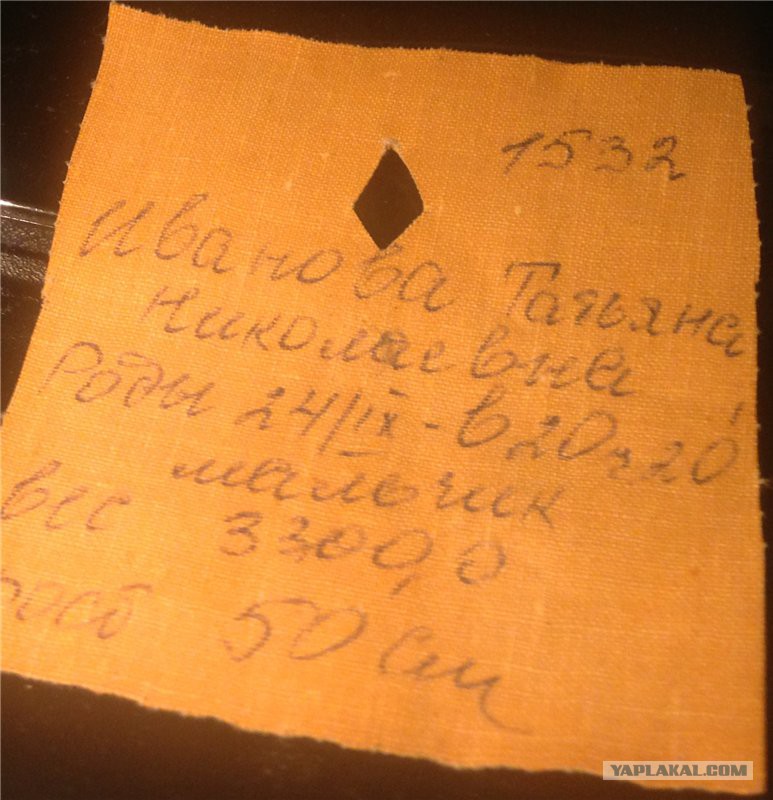 1532
Иванова Татьяна
Николаевна
Роды 24/IX - в 20ч 20'
мальчик
вес 3300,0
рост 50 см
YAPLAKAL.COM